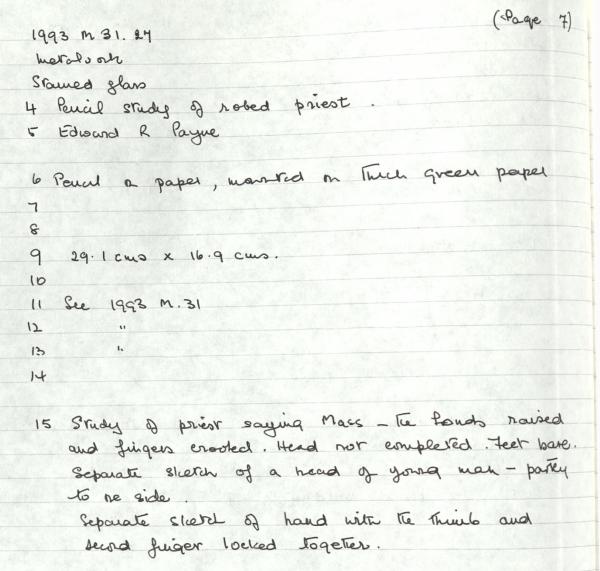 (Page 7)
1993 M. 31. 27
Metalwork
Stained glass
4 Pencil study of robed priest.
5 Edward R Payne
6 Pencil on paper, mounted on thick green paper
7
8
9 29.1 cms x 16.9 cms.
10
11 See 1993 M. 31
12 "
13 "
14
15 Study of priest saying Mass – the hands raised
and fingers crooked. Head not completed. Feet bare.
Separate sketch of a head of young man – partly
to one side.
Separate sketch of hand with the thumb and
second finger locked together.